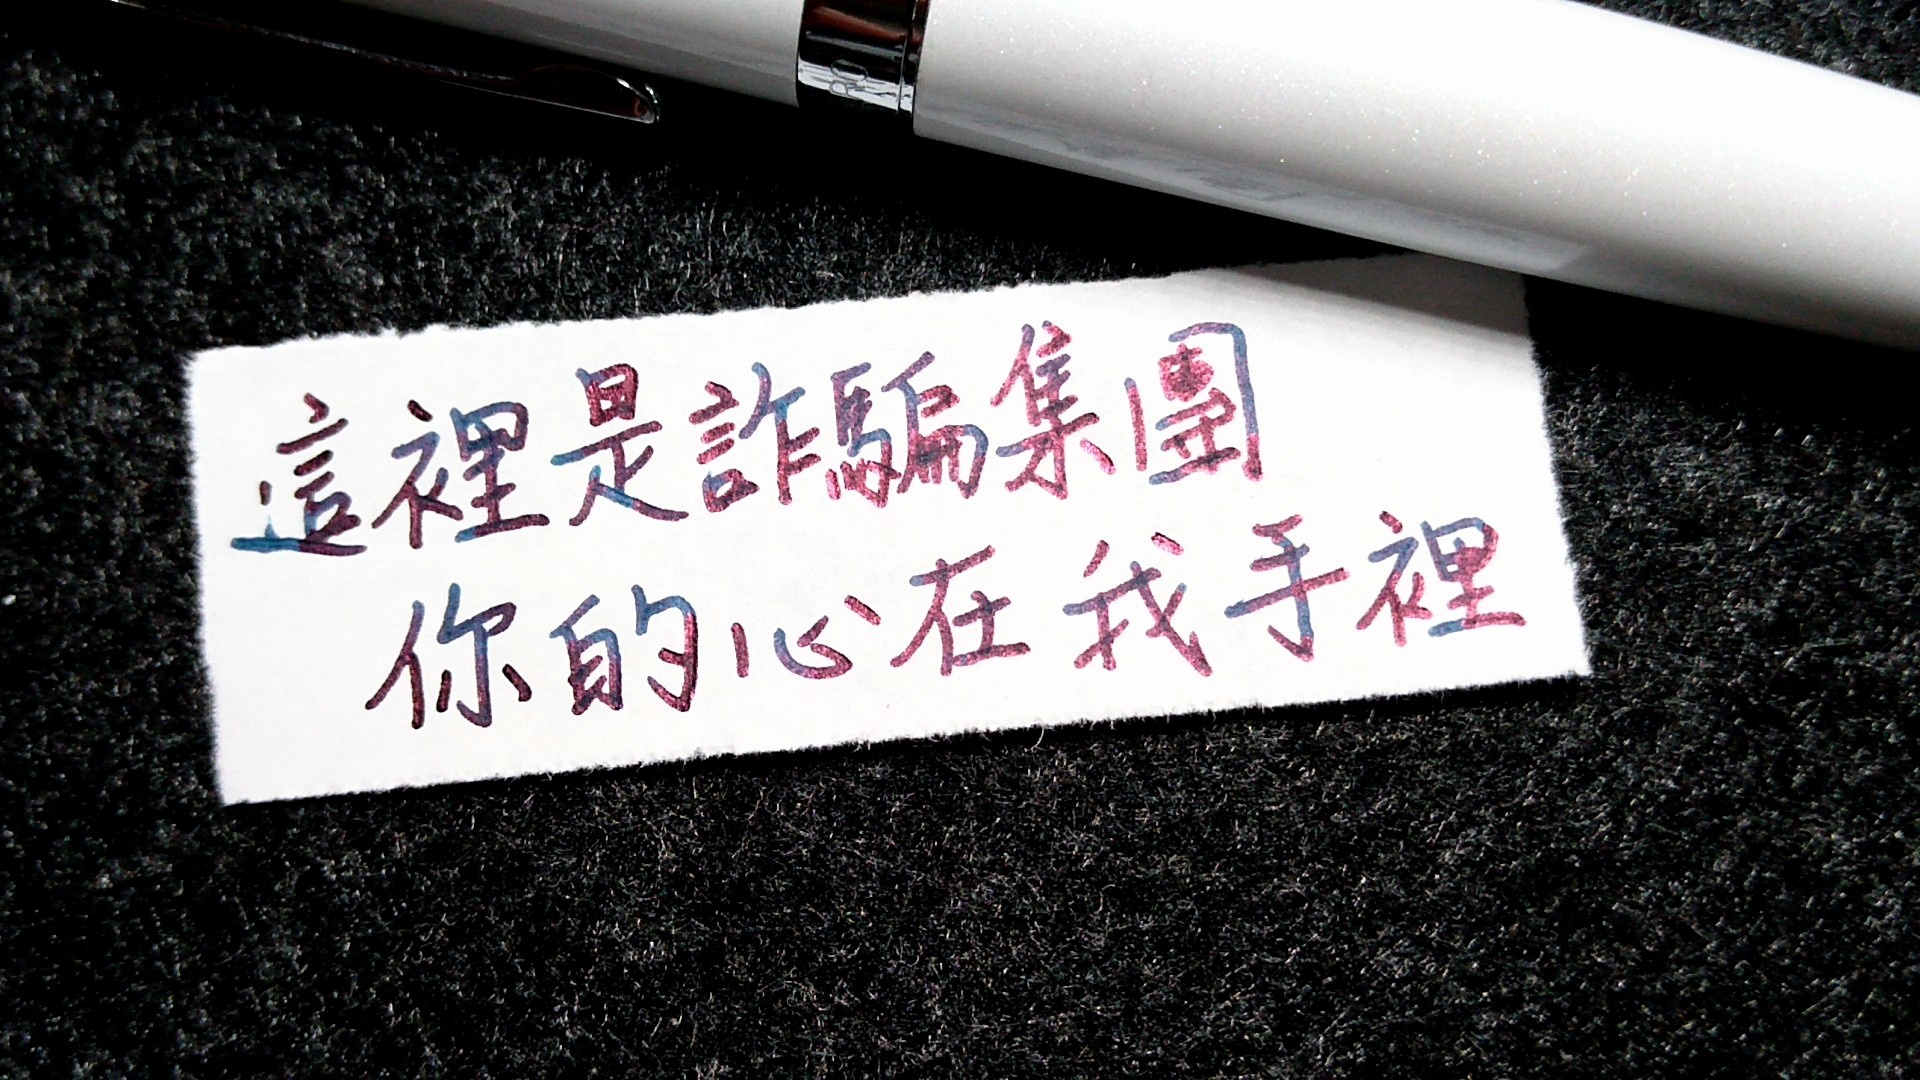 這裡是詐騙集團
你的心在我手裡